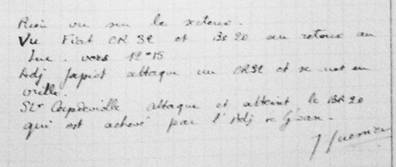 Rien vu sur le secteur.
Vu Fiat CR 32 et Br 20 au retour au
Luc. vers 12h15
Adj Japiot attaque un CR32 et se met en
vrille.
SLt Coupdeville attaque et atteint le BR20
qui est achevé par l'Adj